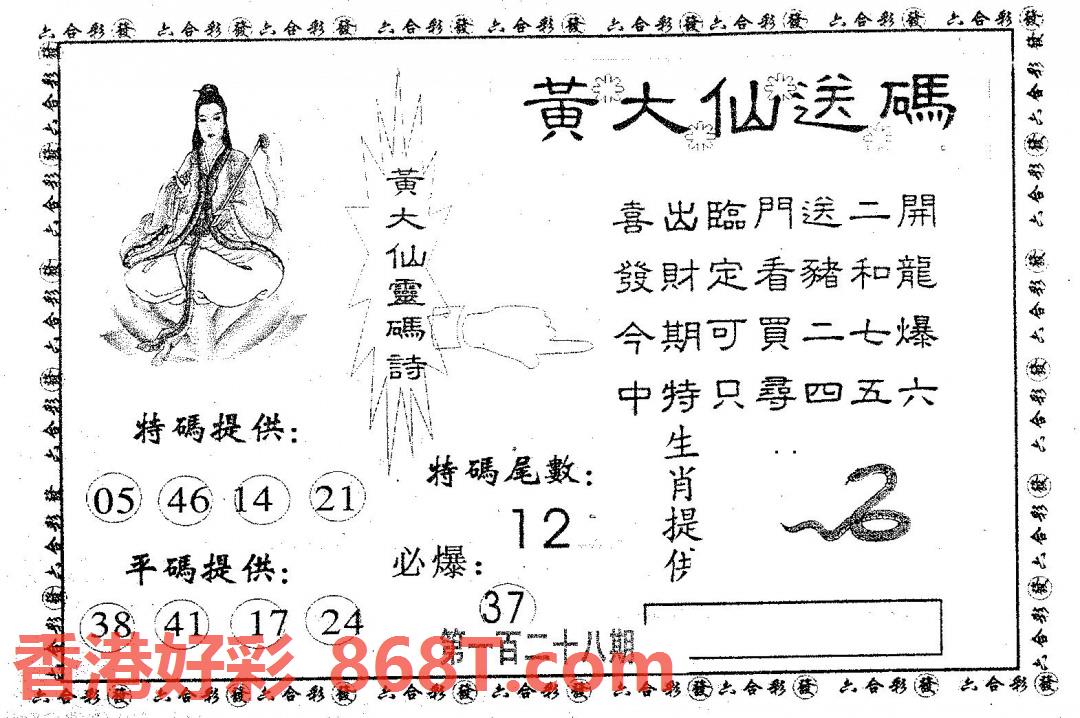 六合彩發 六合彩發 六合彩發 六合彩發 六合彩發 六合彩發 六合彩發 六合彩發 六合彩發
黃大仙送碼
黃大仙靈碼詩
喜出臨門送二開
發財定看豬和龍
今期可買二七爆
中特只尋四五六
特碼提供:
05 46 14 21
平碼提供:
38 41 17 24
特碼尾數:
12
必爆:
37
第一百二十八期
生肖提供
香港好彩 868T.com
六合彩發 六合彩發 六合彩發 六合彩發 六合彩發 六合彩發 六合彩發 六合彩發 六合彩發